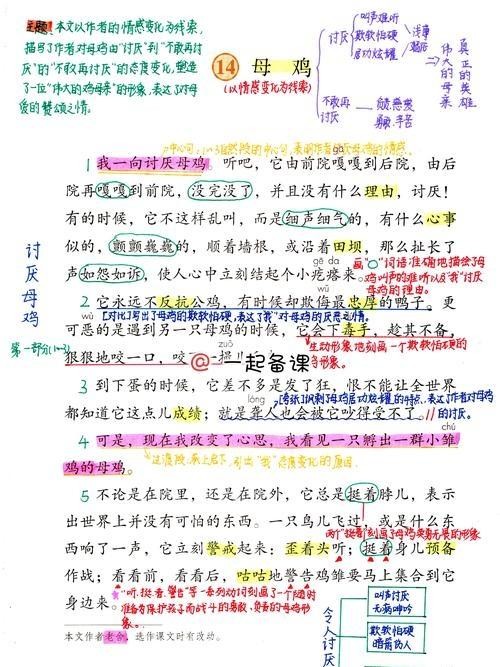 主题:本文以作者的情感变化为线索,
描写了作者对母鸡由“讨厌”到“不敢再讨
厌”的“不敢再讨厌”的态度变化,塑造
了一位“伟大的鸡母亲”的形象,表达了对母
爱的赞颂之情。
14 母 鸡
(以情感变化为线索)
讨厌
叫声难听
欺软怕硬
居功炫耀
浅率
粗俗
不敢再
讨厌
负责慈爱
勇敢、辛苦
伟大的母亲
真正的英雄
中心句:1~3自然段的中心句,表明作者对母鸡的情感。
gā
1 我一向讨厌母鸡。听吧,它由前院嘎嘎到后院,由后
院再嘎嘎到前院,没完没了,并且没有什么理由,讨厌!
有的时候,它不这样乱叫,而是细声细气的,有什么心事
似的,颤颤巍巍的,顺着墙根,或沿着田坝,那么扯长了
gē da
声如怨如诉,使人心中立刻结起个小疙瘩来。
画“○”词语准确地描绘了母
鸡叫声的难听以及“我”讨厌
母鸡的理由。
讨厌母鸡
第一部分(1~3)
wǔ
2 它永远不反抗公鸡,有时候却欺侮最忠厚的鸭子。更
wù
[对比]写出了母鸡的欺软怕硬,表达了“我”对母鸡的厌恶之情。
可恶的是遇到另一只母鸡的时候,它会下毒手,趁其不备,
狠狠地咬一口,咬
zuǒ
撮
生动形象地刻画一个欺软怕硬的
@一起备课
3 到下蛋的时候,它差不多是发了狂,恨不能让全世界
lóng
都知道它这点儿成绩;就是聋人也会被它吵得受不了。
的讨厌。
chú
4 可是,现在我改变了心思,我看见一只孵出一群小雏
鸡的母鸡。
过渡段,承上启下,引出“我”态度变化的原因
5 不论是在院里,还是在院外,它总是挺着脖儿,表示
出世界上并没有可怕的东西。一只鸟儿飞过,或是什么东
西响了一声,它立刻警戒起来:歪着头听;挺着身儿预备
作战;看看前,看看后,咕咕地警告鸡雏要马上集合到它
身边来。
“听、挺着、警告”等一系列动词刻画了一个随时
准备为保护孩子而战斗的勇敢、负责的母鸡形
象。
本文作者老舍,选作课文时有改动。
令人讨厌
叫声讨厌
无病呻吟
欺软怕硬
暗箭伤人